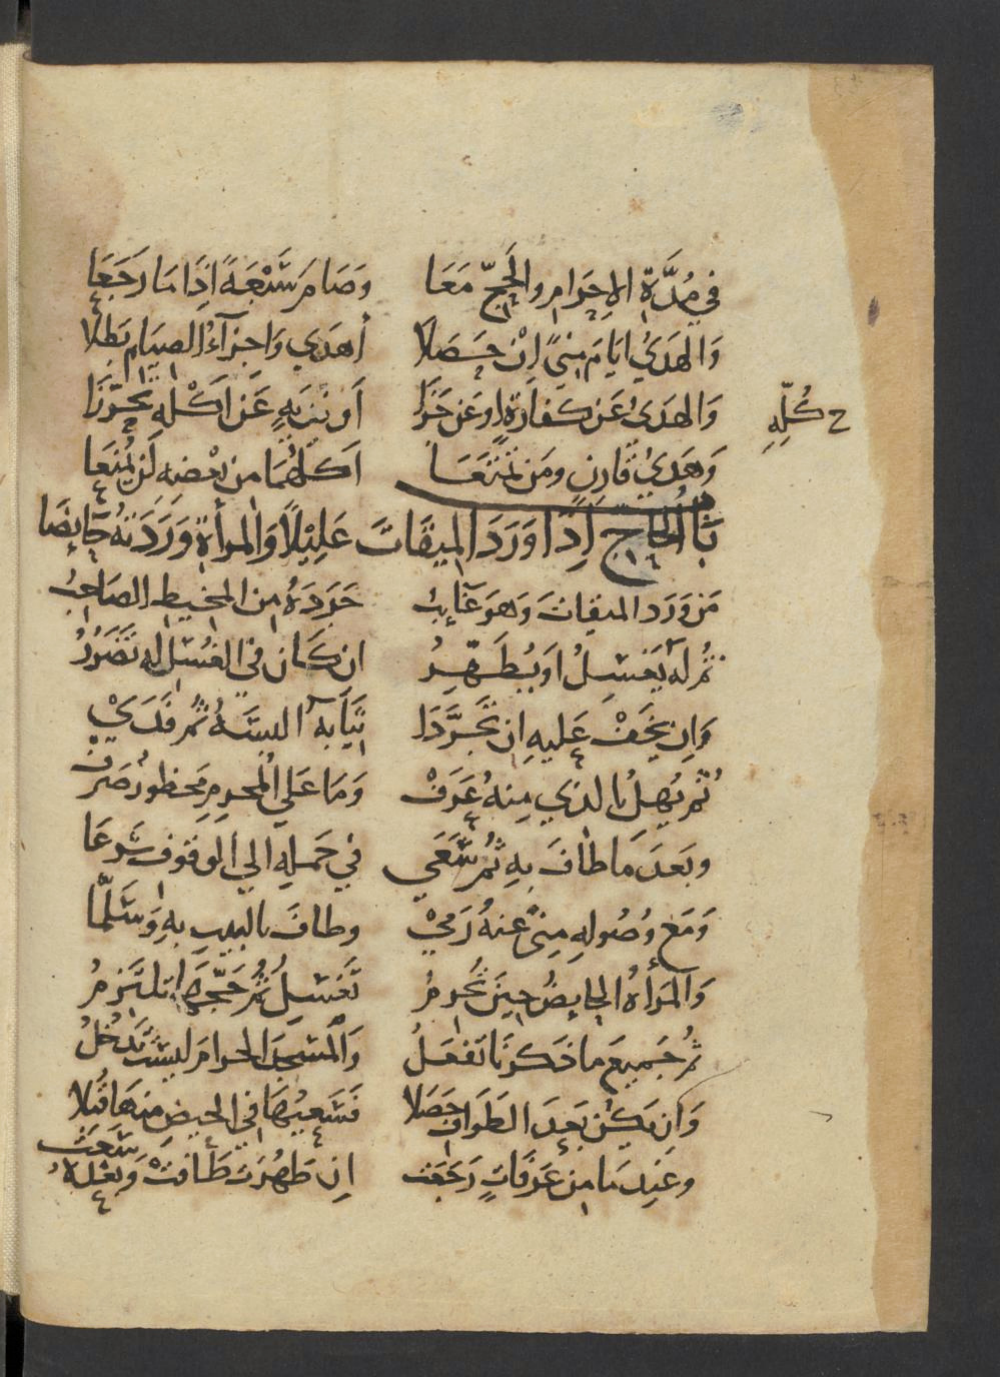 في مُدَّةِ الاِحرَامِ والحَجِّ مَعَا وَصَامَ سَبْعَةً اِذَا مَا رَجَعَا
وَالهَديُ ايَامَ مِنىً اِنْ حَصَلَا أهدَي وَاجزآءُ الصيَامِ بَطَلَا
وَالهَديُ عَن كفارَةٍ اوعَن جَزَا اَو نَذرٍ عَن اَكْلِهِ تَحَرّزَا
ح كُلِّهِ
وَهَديُ قارِنٍ ومَن تَمَتَعَا اَكلُهُمَا من بَعْضِهِ لَن يُمنَعَا
بَابُ الحَاجِ اِذَا وَرَدَ المِيقَاتَ عَلِيْلًا وَالمرأةِ وَرَدَتهُ حَايِضَا
مَن وَرَدَ الميقاتَ وَهوَ جَرَدَهُ مِنَ المخيطِ الصَاحِبُ
ثُم لهُ يَغسِلُ اَو يُطَهِّرُ ان كَانَ في الغُسْلِ لهِ تَضَرُرُ
وَاِن يَخَفْ عَليهِ اِن تَجَرَّدَا ثيَابَهُ البسَهُ ثُم فَدَي
ثُم يُهِلُ بالذي مِنهُ عَرَفْ وَمَا عَلَي المُحرِمِ مَحظورٌ صَرفْ
وبَعدَ مَا طافَ بِهِ ثُم سَعَي في حَملِهِ الي الوقوف شَرعَا
وَمَع وُصُولِهِ مِنىً عنهُ رَميْ وطافَ بالبيتِ بهِ وَسَلَّمَا
وَالمَرأةُ الحايِضُ حِينَ تُحْرِمُ تَغسِلُ ثُم حَجَّهَا تَلتَزِمُ
ثُم جَمِيعَ ما ذَكَرنَا تَفعَلُ وَالمسجدَ الحرامَ ليسَ تَدخُلُ
وَاِن يَكُن بَعدَ الطَوَافِ حَصَلا فَسَعيُهَا في الحيضِ منهَا قُبلا
وعَندَ مَا مِن عَرَفَاتٍ رَجَعَت اِن طَهُرَت طَافتْ وَبعْدَهُ سَعَتْ